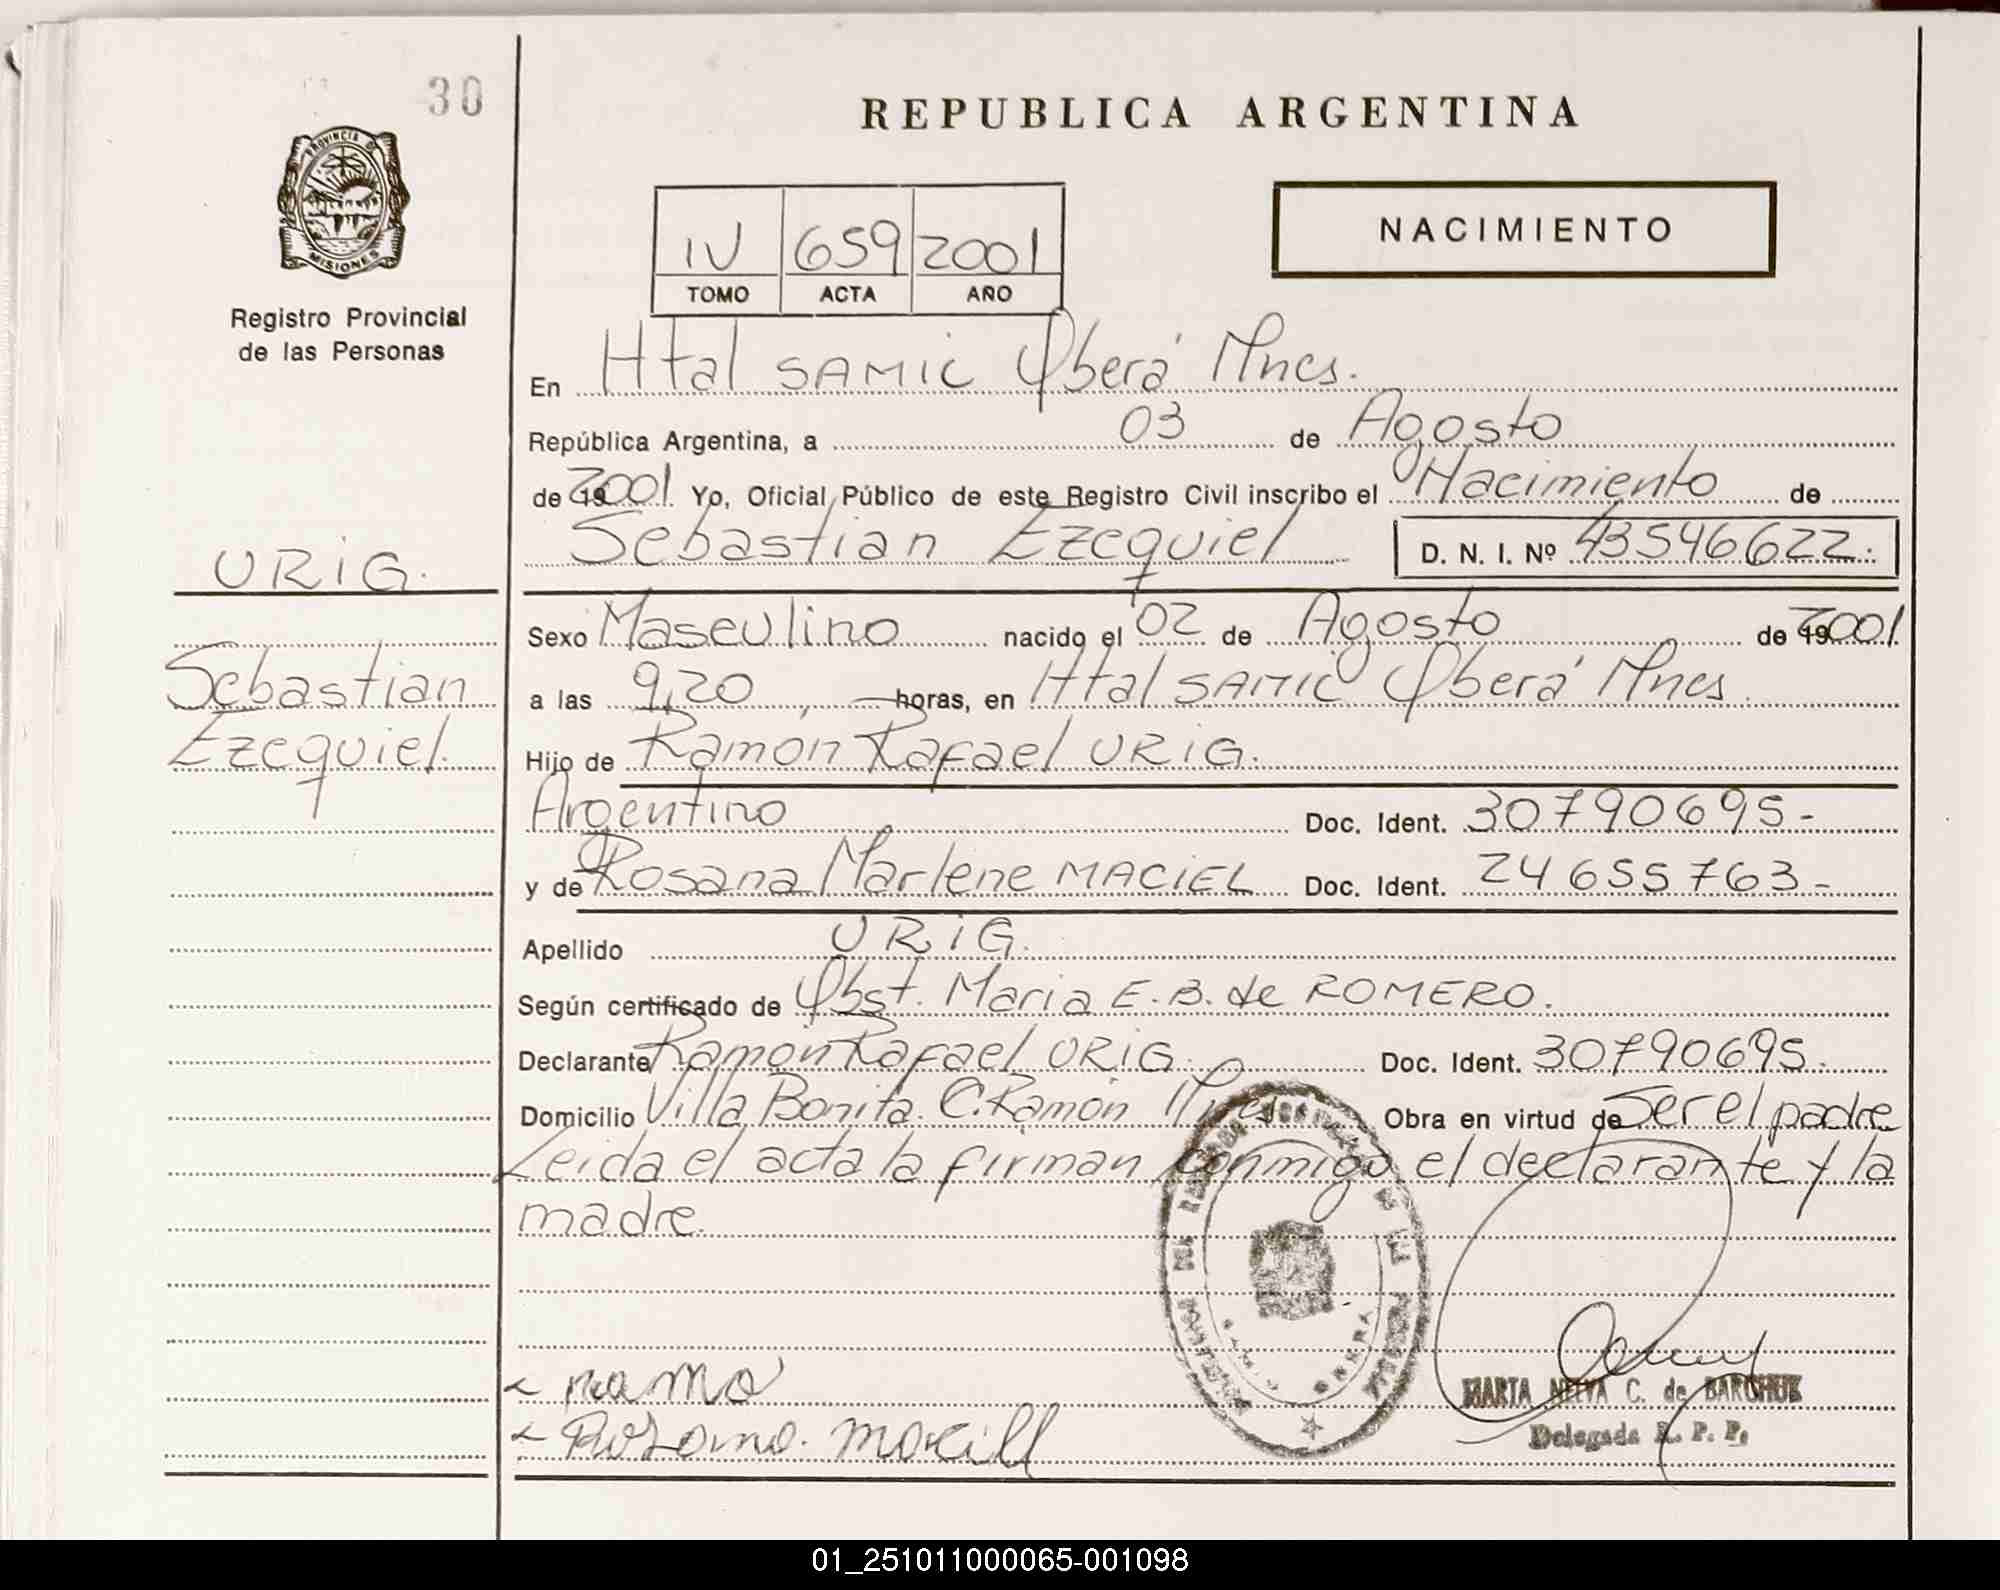 30
PROVINCIA DE
MISIONES
Registro Provincial
de las Personas
URIG.
Sebastian
Ezequiel.
REPUBLICA ARGENTINA
IV 659 2001
TOMO ACTA AÑO
NACIMIENTO
En Htal SAMIC Oberá Mnes.
República Argentina, a 03 de Agosto
de 2001 Yo, Oficial Público de este Registro Civil inscribo el Nacimiento de
Sebastian Ezequiel D. N. I. Nº 43546622.
Sexo Masculino nacido el 02 de Agosto de 2001
a las 9,20 horas, en Htal SAMIC Oberá Mnes.
Hijo de Ramón Rafael URIG.
Argentino Doc. Ident. 30790695-
y de Rosana Marlene MACIEL Doc. Ident. 24655763-
Apellido URIG.
Según certificado de Obst. Maria E. B. de ROMERO.
Declarante Ramón Rafael URIG. Doc. Ident. 30790695.
Domicilio Villa Bonita. C. Ramón Mnes Obra en virtud de Ser el padre
Leida el acta la firman conmigo el declarante y la
madre.
MARTA NEIVA C. de BARCHUK
Delegada R. P. P.
01_251011000065-001098